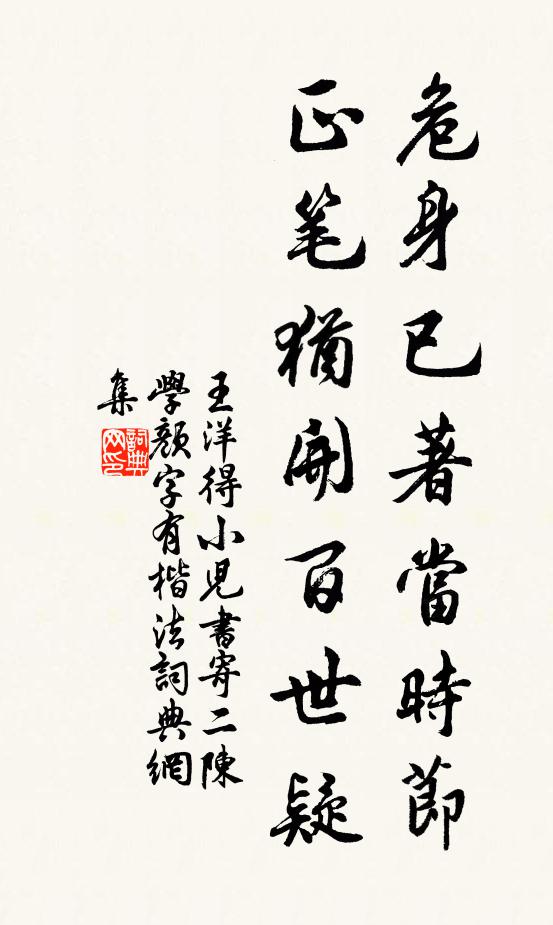 危身已著當時節
正笔猶開百世疑
王洋得小児書寄二陳
學顏字有楷法詞典網
集
詞典
网印